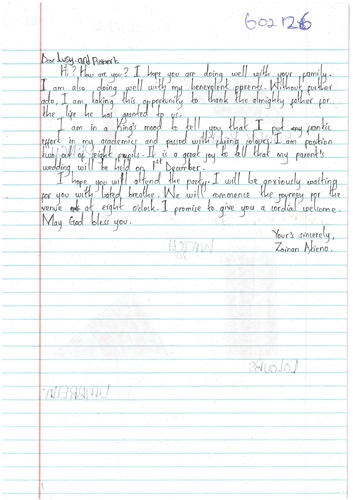 602126
Dear Lucy and Robert
Hi? How are you? I hope you are doing well with your family.
I am also doing well with my benevolent parents. Without further
ado, I am taking this opportunity to thank the almighty father for
the life he has granted to us.
I am in a King's mood to tell you that I put my frantic
effort in my academics and passed with flying colours. I am position
two out of eight pupils. It is a great joy to tell that my parent's
wedding will be held on 1st December.
I hope you will attend the party. I will be anxiously waiting
for you with bated breathe. We will commence the journey for the
venue at eight o'clock. I promise to give you a cordial welcome.
May God bless you.
Your's sincerely,
Zainan Akeno.